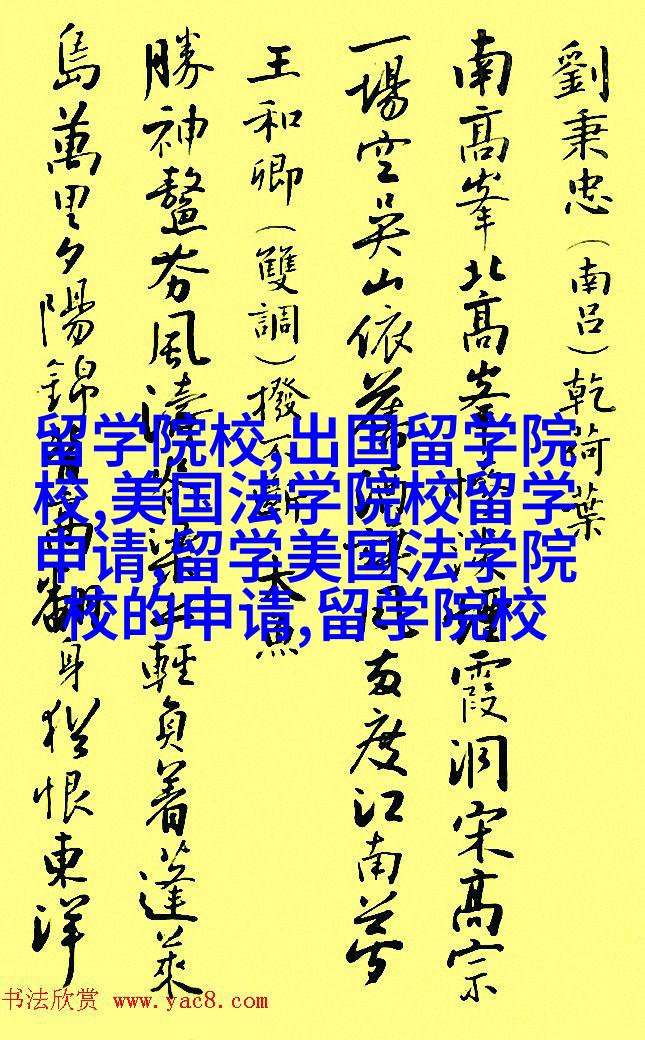 劉秉忠(南呂)乾荷葉
南高峯北高峯惨淡煙霞洞宋高宗
一場空吳山依舊酒旗風兩度江南夢
王和卿(雙調)撥不斷 大魚
勝神鼇夯風濤脊梁上輕負着蓬萊
島萬里夕陽錦背高翻身猶恨東洋
留学院校,出国留学院
校,美国法学院校留学
申请,留学美国法学院
校的申请,留学院校
书法欣赏 www.yac8.com